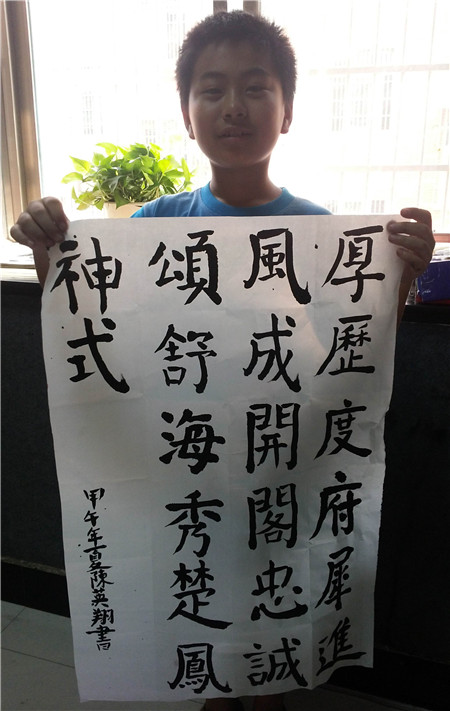 厚歷度府犀進
風成開閣忠誠
頌舒海秀楚鳳
神式
甲午年夏陳英翔書